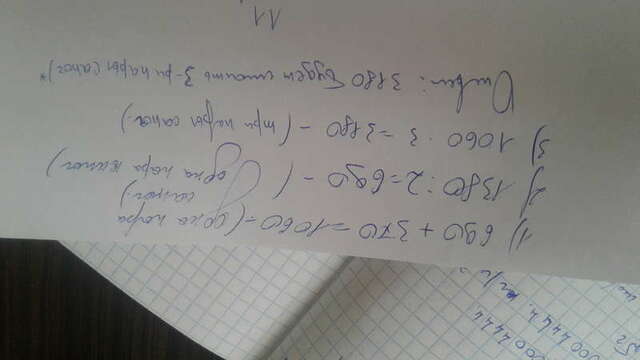 1) 690 + 370 = 1060 – (одна пара
сапог)
2) 1380 : 2 = 690 – (одна пара
3) 1060 · 3 = 3180 – (три пары сапог.)
Ответ: 3180 будет стоить 3-ри пары сапог)
11